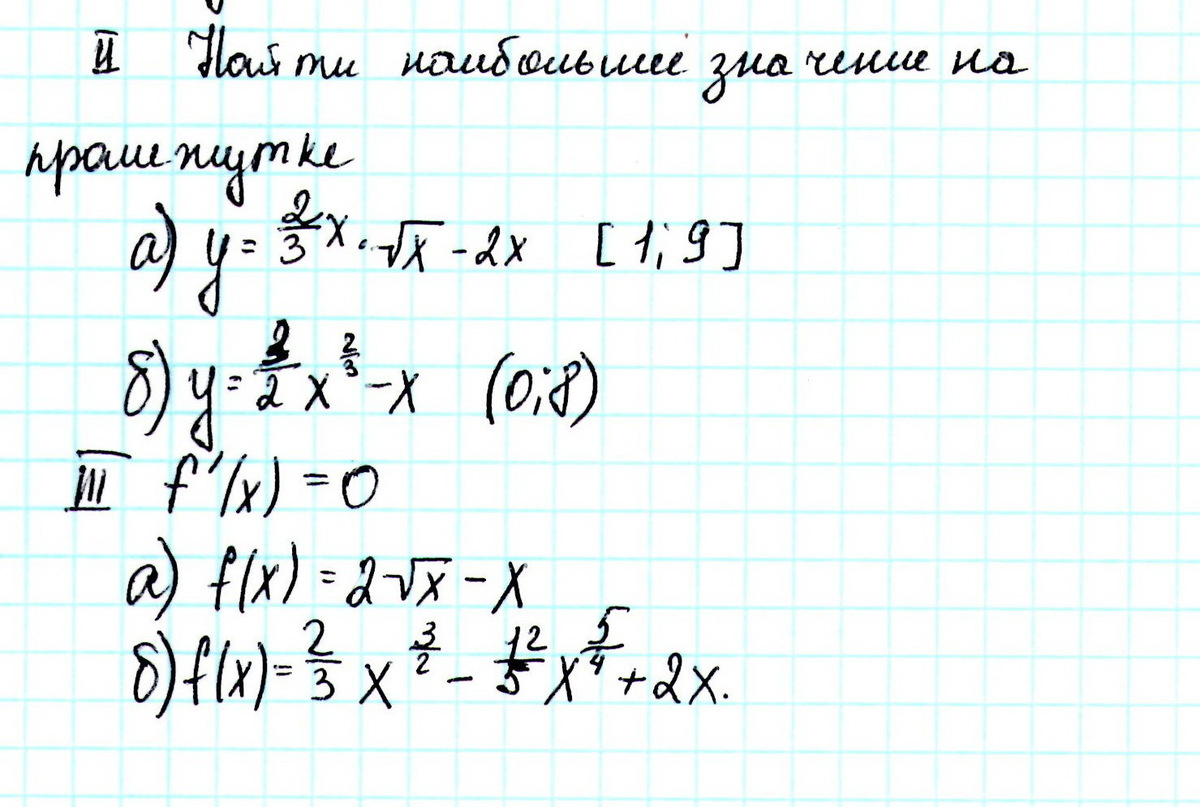 II Найти наибольшее значение на
промежутке
а) y = 2/3 x · √x - 2x [1; 9]
б) y = 3/2 x^(2/3) - x (0; 8)
III f'(x) = 0
а) f(x) = 2√x - x
б) f(x) = 2/3 x^(3/2) - 12/5 x^(5/4) + 2x.